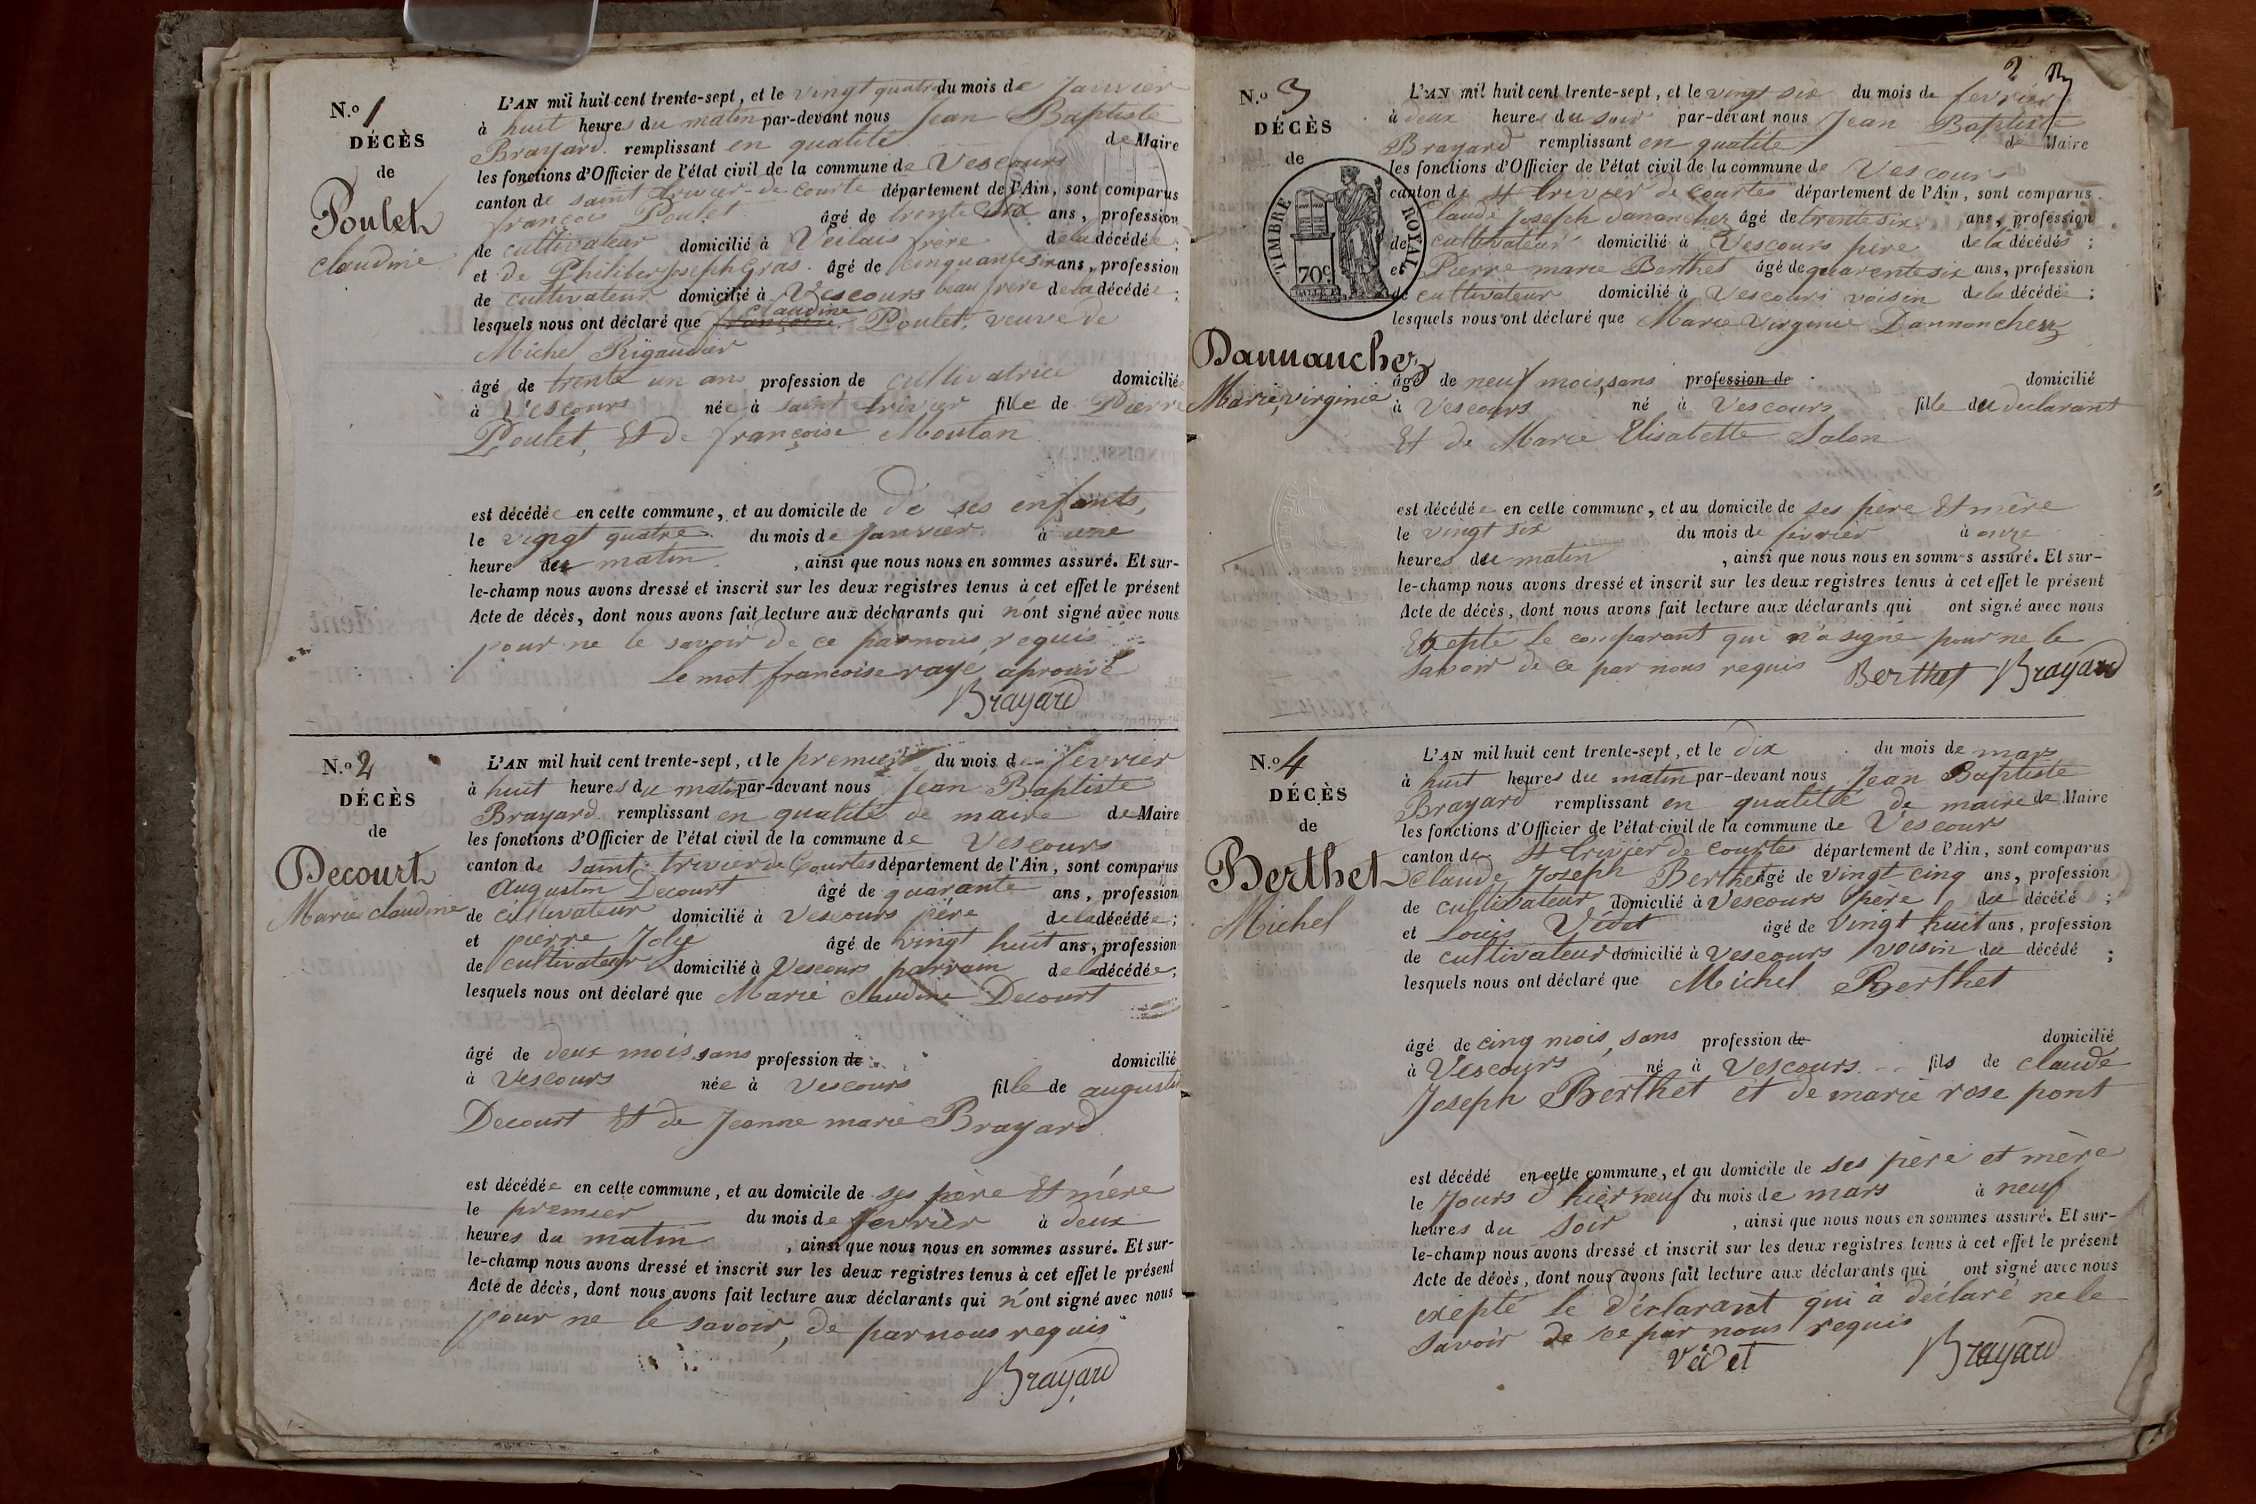 N.o 1
DÉCÈS
de
Poulet
claudine
L'AN mil huit cent trente-sept, et le vingt quatre du mois de Janvier
à huit heures du matin par-devant nous Jean Baptiste
Brayard remplissant en qualité de Maire
les fonctions d'Officier de l'état civil de la commune de Vescours
canton de saint trivier de courte département de l'Ain, sont comparus
françois Poulet âgé de trente ans, profession
de cultivateur domicilié à frère de la décédée ;
et de Philiber Joseph Gras âgé de cinquante six ans, profession
de cultivateur domicilié à Vescours beau frère de la décédée ;
claudine
lesquels nous ont déclaré que françoise Poulet, veuve de
Michel Rigaudier
âgé de trente un ans profession de cultivatrice domiciliée
à Vescours née à saint trivier fille de Pierre
Poulet, Et de françoise Mouton
est décédée en cette commune, et au domicile de de ses enfants,
le vingt quatre du mois de Janvier à une
heure du matin , ainsi que nous nous en sommes assuré. Et sur-
le-champ nous avons dressé et inscrit sur les deux registres tenus à cet effet le présent
Acte de décès, dont nous avons fait lecture aux déclarants qui n'ont signé avec nous
pour ne le savoir de ce par nous requis
Le mot francoise raye aprouvé
Brayard
N.o 2
DÉCÈS
de
Decourt
Marie claudine
L'AN mil huit cent trente-sept, et le premier du mois de fevrier
à huit heures du matin par-devant nous Jean Baptiste
Brayard remplissant en qualité de maire de Maire
les fonctions d'Officier de l'état civil de la commune de Vescours
canton de saint trivier de Courtes département de l'Ain, sont comparus
Augustin Decourt âgé de quarante ans, profession
de cultivateur domicilié à Vescours père de la décédée ;
et pierre Joly âgé de vingt huit ans, profession
de cultivateur domicilié à Vescours parrain de la décédée ;
lesquels nous ont déclaré que Marie claudine Decourt
âgé de deux mois sans profession de domicilié
à Vescours née à Vescours fille de augustin
Decourt Et de Jeanne marie Brayard
est décédée en cette commune, et au domicile de ses père Et mère
le premier du mois de fevrier à deux
heures du matin , ainsi que nous nous en sommes assuré. Et sur-
le-champ nous avons dressé et inscrit sur les deux registres tenus à cet effet le présent
Acte de décès, dont nous avons fait lecture aux déclarants qui n'ont signé avec nous
pour ne le savoir, de par nous requis
Brayard
2
N.o 3
DÉCÈS
de
TIMBRE ROYAL
70c
Dannancher
Marie, virginie
L'AN mil huit cent trente-sept, et le vingt six du mois de fevrier
à deux heures du soir par-devant nous Jean Baptiste
Brayard remplissant en qualité de Maire
les fonctions d'Officier de l'état civil de la commune de Vescours
canton de st trivier de Courtes département de l'Ain, sont comparus
Claude Joseph danancher âgé de trente six ans, profession
de cultivateur domicilié à Vescours père de la décédés ;
et Pierre marie Berthet âgé de quarente six ans, profession
de cultivateur domicilié à Vescours voisin de la décédée ;
lesquels nous ont déclaré que Marie Virginie Dannancher
âgé de neuf mois, sans profession de domicilié
à Vescours né à Vescours fille du declarant
Et de Marie Elisabette Salon
est décédée en cette commune, et au domicile de ses père Et mère
le vingt six du mois de fevrier à onze
heures du matin , ainsi que nous nous en sommes assuré. Et sur-
le-champ nous avons dressé et inscrit sur les deux registres tenus à cet effet le présent
Acte de décès, dont nous avons fait lecture aux déclarants qui ont signé avec nous
Exepte le comparant qui n'a signé pour ne le
savoir de ce par nous requis Berthet Brayard
N.o 4
DÉCÈS
de
Berthet
Michel
L'AN mil huit cent trente-sept, et le dix du mois de mars
à huit heures du matin par-devant nous Jean Baptiste
Brayard remplissant en qualité de maire de Maire
les fonctions d'Officier de l'état civil de la commune de Vescours
canton de st trivier de courtes département de l'Ain, sont comparus
claude Joseph Berthet âgé de vingt cinq ans, profession
de cultivateur domicilié à Vescours père du décédé ;
et Louis Vedet âgé de vingt huit ans, profession
de cultivateur domicilié à Vescours voisin du décédé ;
lesquels nous ont déclaré que Michel Berthet
âgé de cinq mois, sans profession de domicilié
à Vescours né à Vescours fils de claude
Joseph Berthet et de marie rose pont
est décédé en cette commune, et au domicile de ses père et mère
le Jours d'hier neuf du mois de mars à neuf
heures du soir , ainsi que nous nous en sommes assuré. Et sur-
le-champ nous avons dressé et inscrit sur les deux registres tenus à cet effet le présent
Acte de décès, dont nous avons fait lecture aux déclarants qui ont signé avec nous
exepté le déclarant qui a déclaré ne le
savoir de ce par nous requis
vedet Brayard